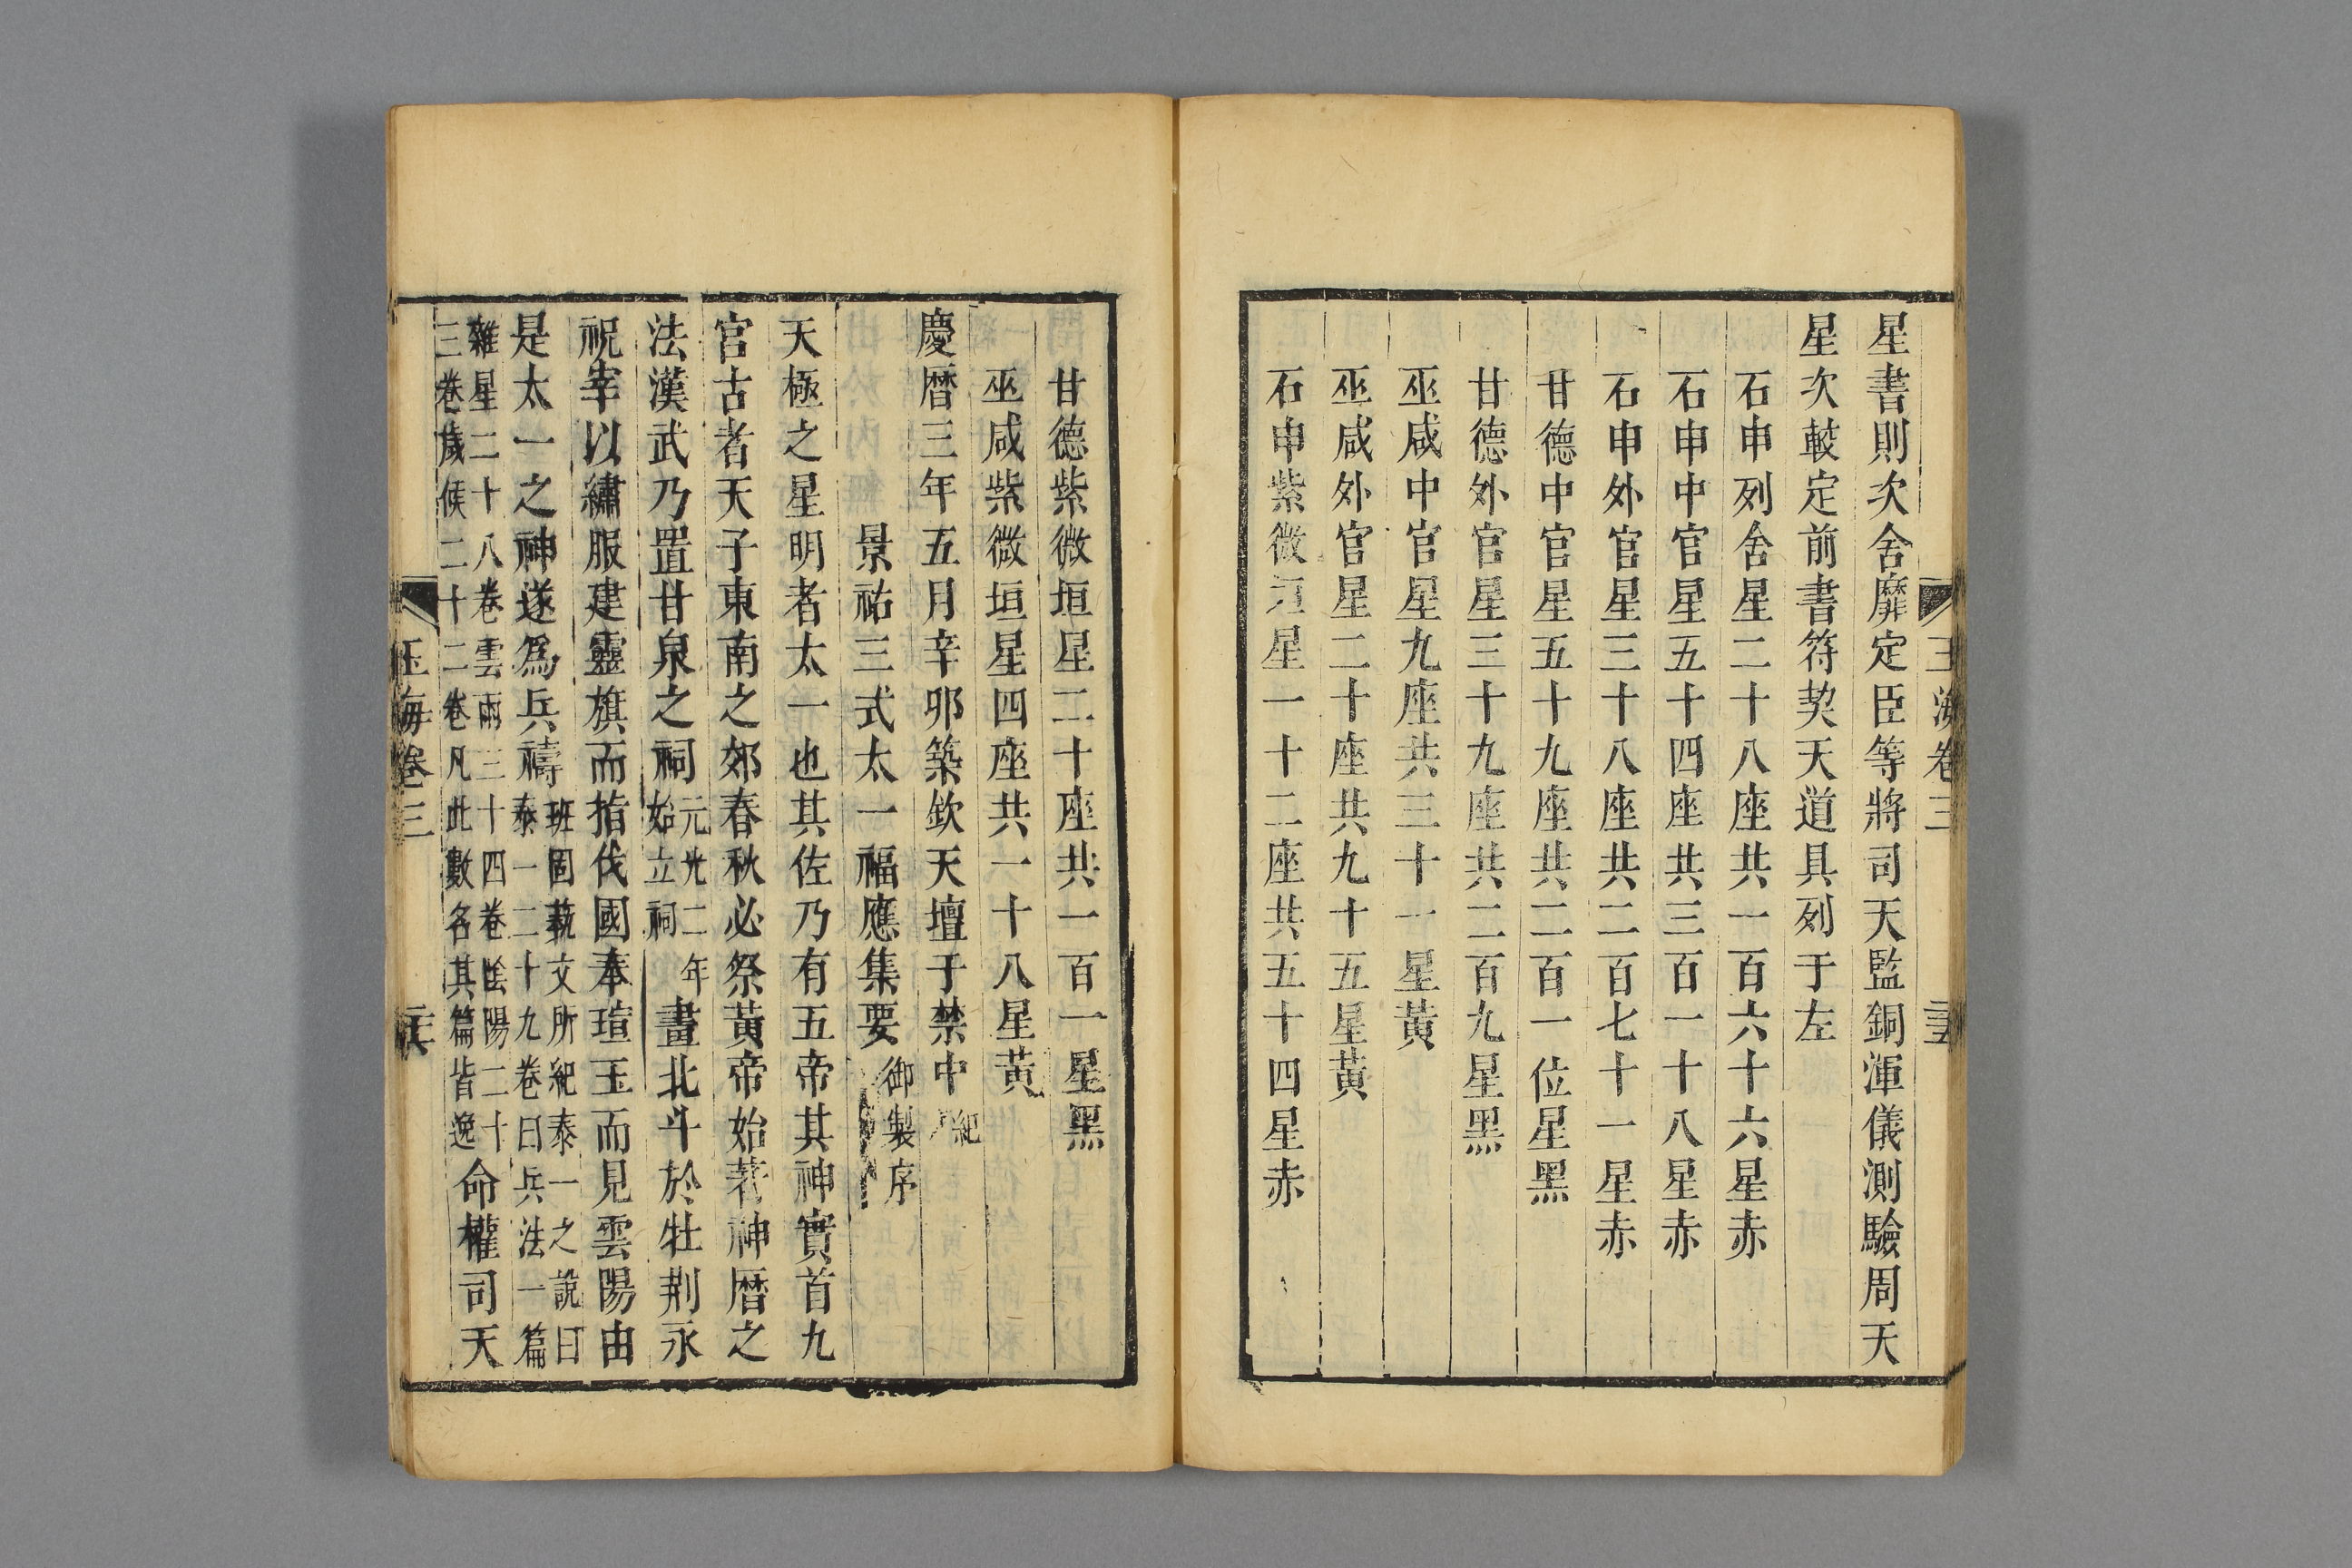 星書則次舍靡定臣等將司天監銅渾儀測驗周天
星次較定前書符契天道具列于左
石申列舍星二十八座共一百六十六星赤
石申中官星五十四座共三百一十八星赤
石申外官星三十八座共二百七十一星赤
甘德中官星五十九座共二百一位星黑
甘德外官星三十九座共二百九星黑
巫咸中官星九座共三十一星黃
巫咸外官星二十座共九十五星黃
石申紫微垣星一十二座共五十四星赤
玉海卷三
甘德紫微垣星二十座共一百一星黑
巫咸紫微垣星四座共一十八星黃
慶曆三年五月辛卯築欽天壇于禁中紀
景祐三式太一福應集要御製序
天極之星明者太一也其佐乃有五帝其神實首九
官古者天子東南之郊春秋必祭黃帝始著神曆之
法漢武乃置甘泉之祠元光二年始立祠畫北斗於牡荆永
祝宰以繡服建靈旗而指伐國奉瑄玉而見雲陽由
是太一之神遂爲兵禱班固藝文所紀泰一之說曰泰一二十九卷曰兵法一篇
雜星二十八卷雲雨三十四卷陰陽二十三卷歲候二十二卷凡此數名其篇皆逸命權司天
玉海卷三